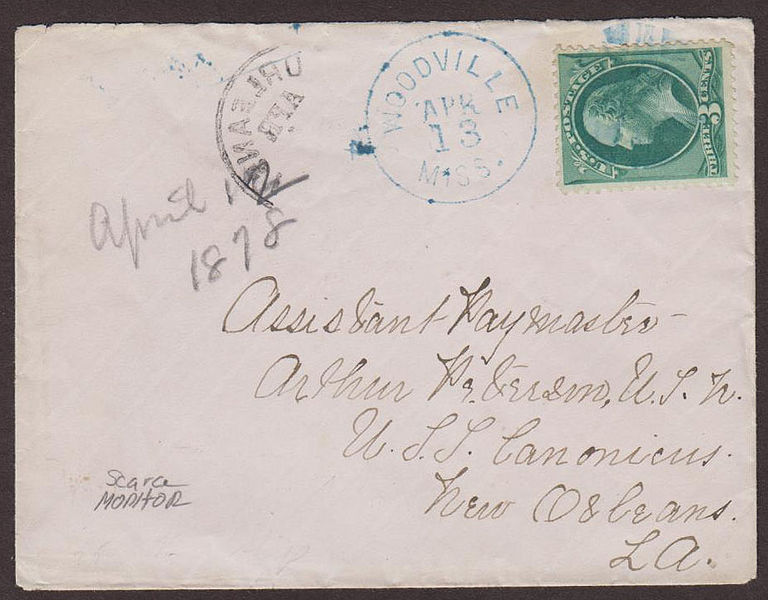 WOODVILLE
APR
13
MISS.
U.S. POSTAGE
3
THREE CENTS
April 1
1878
Assistant Paymaster
Arthur Peterson, U.S.N.
U.S.S. Canonicus.
New Orleans.
LA.
Scarce
MONITOR